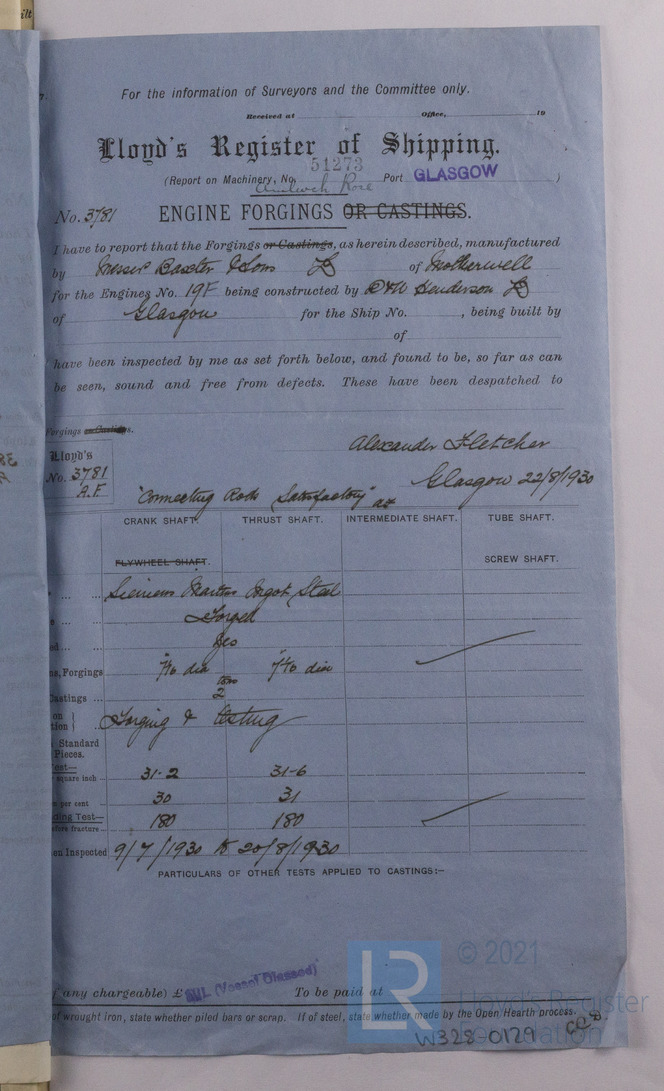 For the information of Surveyors and the Committee only.
Received at Office, 19
Lloyd's Register of Shipping.
51273
(Report on Machinery, No. Port GLASGOW )
Amlwch Rose
No. 3781 ENGINE FORGINGS OR CASTINGS.
I have to report that the Forgings or Castings, as herein described, manufactured
by Messrs Baxter & Sons Ld of Motherwell
for the Engines No. 19F being constructed by D & W Henderson Ld
of Glasgow for the Ship No. , being built by
of
have been inspected by me as set forth below, and found to be, so far as can
be seen, sound and free from defects. These have been despatched to
Forgings or Castings.
Alexander Fletcher
Lloyd's
No. 3781
A.F
Glasgow 22/8/1930
"Connecting Rods Satisfactory"
CRANK SHAFT. THRUST SHAFT. INTERMEDIATE SHAFT. TUBE SHAFT.
FLYWHEEL SHAFT. SCREW SHAFT.
Siemens Martin Ingot Steel
Forged
Yes
ns, Forgings 7/16 dia 7/16 dia
Castings 2
on
tion Forging & testing
Standard
Pieces.
est—
square inch 31.2 31.6
per cent 30 31
ding Test—
before fracture 180 180
en Inspected 9/7/1930 to 20/8/1930
PARTICULARS OF OTHER TESTS APPLIED TO CASTINGS:—
if any chargeable) £ NIL (Vessel Classed) To be paid at
of wrought iron, state whether piled bars or scrap. If of steel, state whether made by the Open Hearth process.
W328-0129
LR
© 2021
Lloyd's Register
Foundation